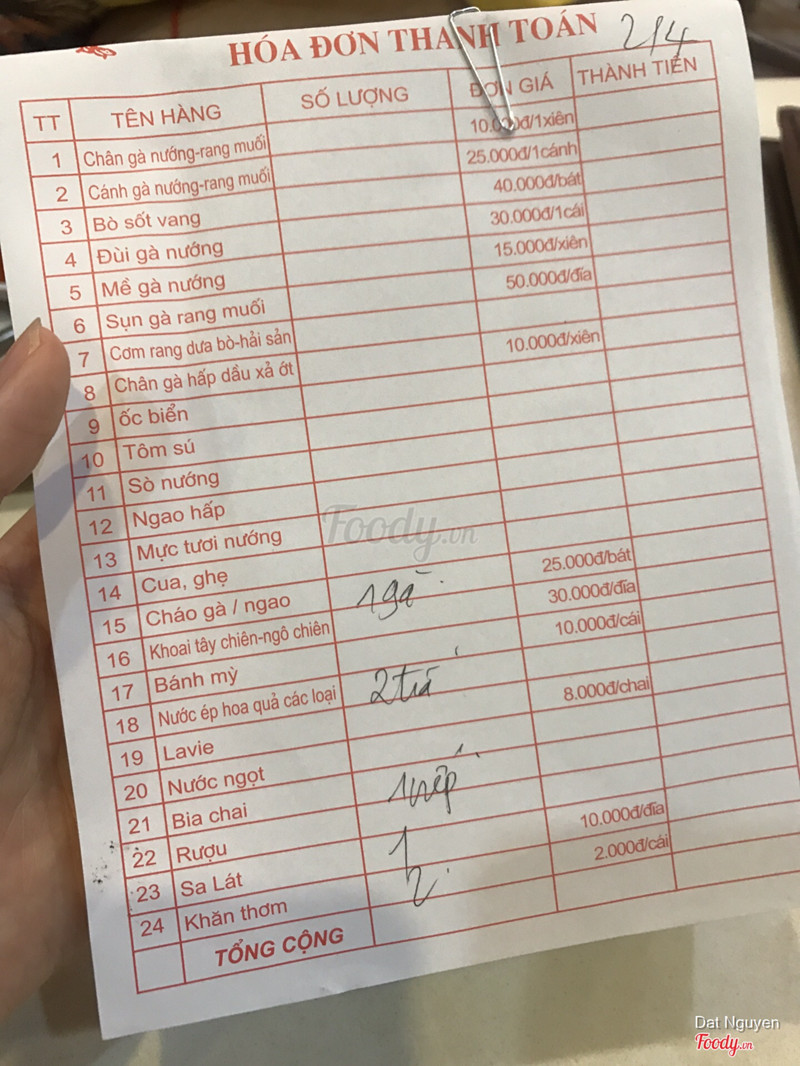 HÓA ĐƠN THANH TOÁN 214
TT TÊN HÀNG SỐ LƯỢNG ĐƠN GIÁ THÀNH TIỀN
1 Chân gà nướng-rang muối 10.000đ/1xiên
2 Cánh gà nướng-rang muối 25.000đ/1cánh
3 Bò sốt vang 40.000đ/bát
4 Đùi gà nướng 30.000đ/1cái
5 Mề gà nướng 15.000đ/xiên
6 Sụn gà rang muối 50.000đ/đĩa
7 Cơm rang dưa bò-hải sản
8 Chân gà hấp dầu xả ớt 10.000đ/xiên
9 ốc biển
10 Tôm sú
11 Sò nướng
12 Ngao hấp
13 Mực tươi nướng
14 Cua, ghẹ
15 Cháo gà / ngao 1 gà 25.000đ/bát
16 Khoai tây chiên-ngô chiên 30.000đ/đĩa
17 Bánh mỳ 10.000đ/cái
18 Nước ép hoa quả các loại 2 trà
19 Lavie 8.000đ/chai
20 Nước ngọt
21 Bia chai 1 nếp
22 Rượu
23 Sa Lát 1 10.000đ/đĩa
24 Khăn thơm 2 2.000đ/cái
TỔNG CỘNG
Foody.vn
Dat Nguyen
Foody.vn